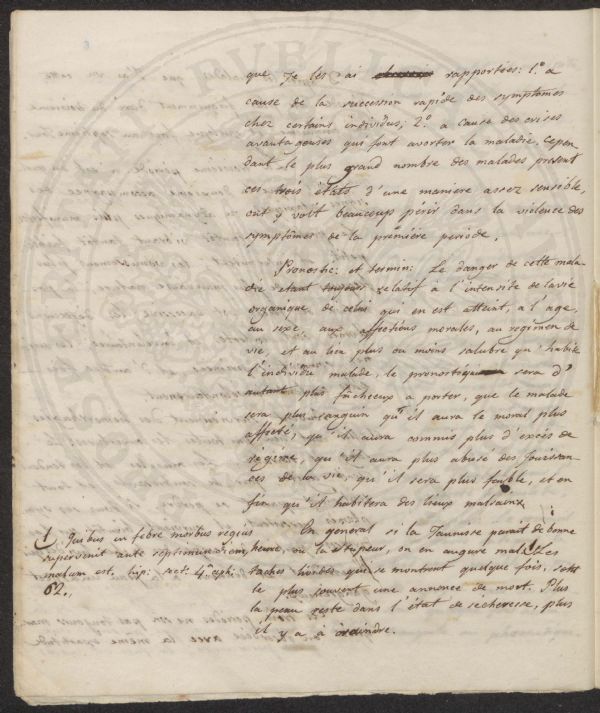 que je les ai rapportées: 1.° a
cause de la succession rapide des symptômes
chez certains individus; 2.° a cause des crises
avantageuses qui font avorter la maladie. cepen
dant le plus grand nombre des malades present
ces trois états d'une maniere assez sensible,
ont y voit beaucoups périr dans la violence des
symptômes de la première periode.
Pronostic: et termin: Le danger de cette mala
die etant toujours relatif à l'intensite de la vie
organique de celui qui en est atteint, a l'age,
au sexe, aux affections morales, au regimen de
vie, et au lieu plus ou moins salubre qu'habite
l'individu malade, le pronostique sera d'
autant plus fâcheux a porter, que le malade
sera plus sanguin qu'il aura le moral plus
affecté, qu'il aura commis plus d'excés de
régime, qu'il aura plus abusé des jouissan
ces de la vie, qu'il sera plus faible, et en
fin qu'il habitera des lieux malsains.
En general si la Jaunisse parait de bonne
heure, ou la stupeur, on en augure mal. 1 Les
taches livides que se montront quelque fois, sont
le plus souvent une annonce de mort. Plus
la peau reste dans l'état de sécheresse, plus
il y a à craindre.
1. Quibus in febre morbus regius
supervenit ante septimum diem,
malum est. hip: sect. 4. aph:
62.